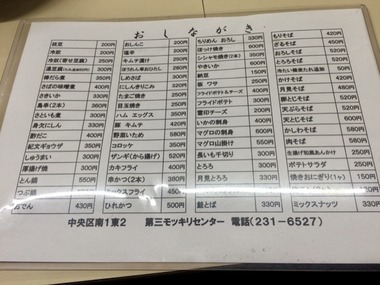 おしながき
枝豆 200円
冷奴 200円
冷奴(寄せ豆腐)
湯豆腐
豚だら煮 350円
さばの味噌煮 400円
さきいか 330円
鳥串(2本) 360円
さといも煮 300円
身欠にしん 330円
野だこ 400円
紀文ギョウザ 350円
しゅうまい 350円
厚揚げ焼 350円
とん鍋 550円
つぶ鍋
おでん 430円
おしんこ 200円
塩辛 200円
キムチ漬け 250円
ほうれん草おひたし 280円
しめさば 350円
にしんきりこみ 320円
たまご焼き 250円
目玉焼き 250円
ハム エッグス 350円
豚 キムチ 420円
野菜いため 580円
コロッケ 350円
ザンギ(から揚げ) 520円
カキフライ 350円
串かつ(2本) 380円
ミックスフライ
ひれかつ 500円
ちりめん おろし 330円
ほっけ焼き 300円
シシャモ焼き(3本) 390円
やきいか 600円
納豆 150円
板 ワサ 250円
フライドポテト&チーズ
フライドポテト 300円
雪印チーズ 200円
いかの刺身 400円
マグロの刺身 600円
マグロ山掛け 550円
長いも千切り 300円
とろろ 300円
月見とろろ 350円
鮭とば 350円
もりそば 420円
ざるそば 450円
おろしそば 520円
とろろそば 520円
冷たい蕎麦たれ追加 50円
かけそば 420円
月見そば 480円
卵とじそば 520円
天ぷらそば 520円
かしわそば 520円
肉そば 580円
生揚げ和風あんかけ 250円
ポテトサラダ 250円
焼きおにぎり(1ヶ) 150円
ミックスナッツ 330円
中央区南1東2 第三モッキリセンター 電話(231-6527)